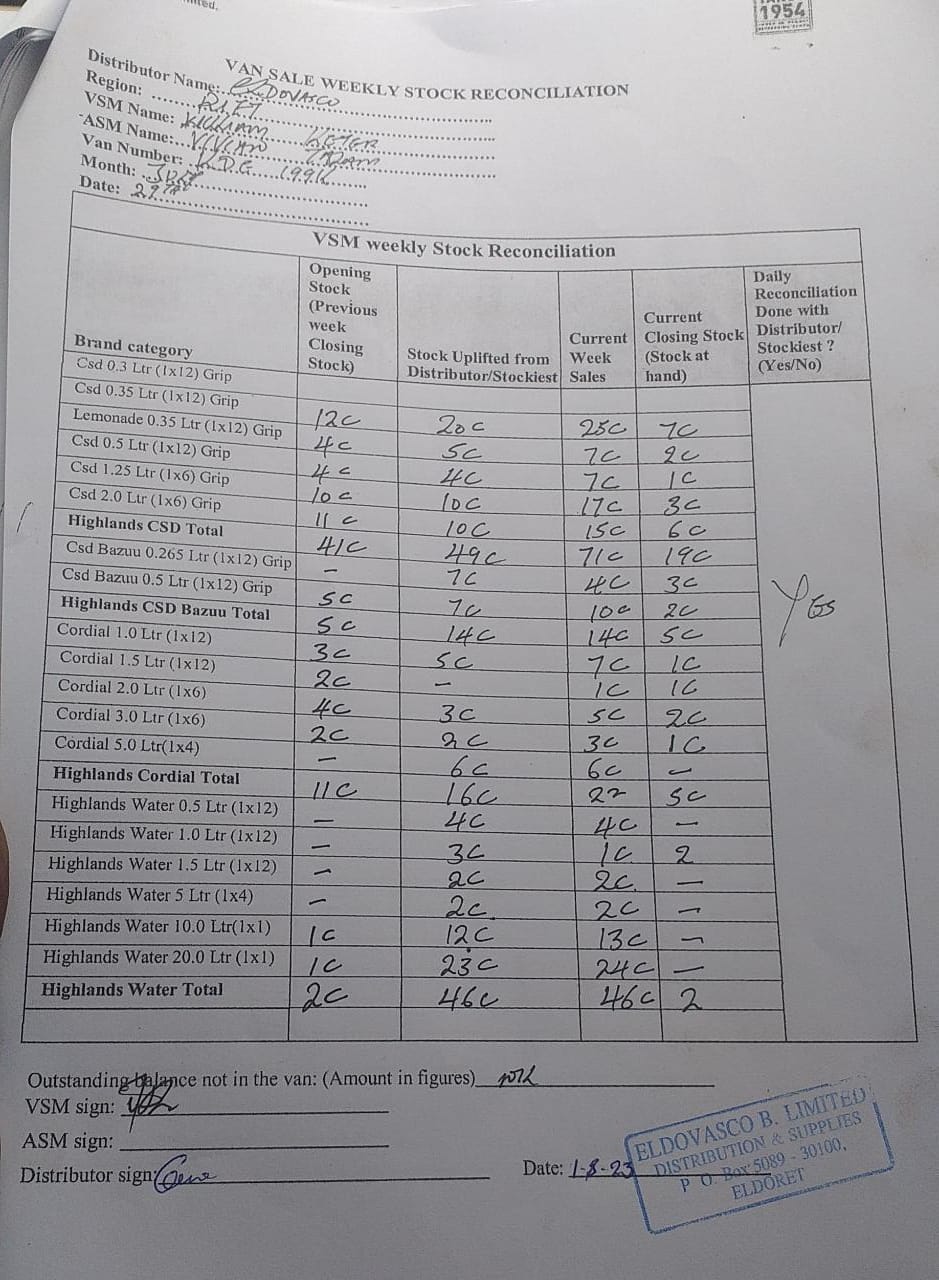 1954
VAN SALE WEEKLY STOCK RECONCILIATION
Distributor Name: ELDOVASCO
Region: RIFT
VSM Name: WILLIAM KETER
ASM Name: VIVIAN
Van Number: KDG 199K
Month:
Date: 29th
VSM weekly Stock Reconciliation
Brand category
Opening Stock (Previous week Closing Stock)
Stock Uplifted from Distributor/Stockiest
Current Week Sales
Current Closing Stock (Stock at hand)
Daily Reconciliation Done with Distributor/ Stockiest ? (Yes/No)
Csd 0.3 Ltr (1x12) Grip
Csd 0.35 Ltr (1x12) Grip 12C 20C 25C 7C
Lemonade 0.35 Ltr (1x12) Grip 4C 5C 7C 2C
Csd 0.5 Ltr (1x12) Grip 4C 4C 7C 1C
Csd 1.25 Ltr (1x6) Grip 10C 10C 17C 3C
Csd 2.0 Ltr (1x6) Grip 11C 10C 15C 6C
Highlands CSD Total 41C 49C 71C 19C
Csd Bazuu 0.265 Ltr (1x12) Grip – 7C 4C 3C
Csd Bazuu 0.5 Ltr (1x12) Grip 5C 7C 10C 2C
Highlands CSD Bazuu Total 5C 14C 14C 5C
YES
Cordial 1.0 Ltr (1x12) 3C 5C 7C 1C
Cordial 1.5 Ltr (1x12) 2C – 1C 1C
Cordial 2.0 Ltr (1x6) 4C 3C 5C 2C
Cordial 3.0 Ltr (1x6) 2C 2C 3C 1C
Cordial 5.0 Ltr(1x4) – 6C 6C –
Highlands Cordial Total 11C 16C 22 5C
Highlands Water 0.5 Ltr (1x12) – 4C 4C –
Highlands Water 1.0 Ltr (1x12) – 3C 1C 2
Highlands Water 1.5 Ltr (1x12) – 2C 2C –
Highlands Water 5 Ltr (1x4) – 2C 2C –
Highlands Water 10.0 Ltr(1x1) 1C 12C 13C –
Highlands Water 20.0 Ltr (1x1) 1C 23C 24C –
Highlands Water Total 2C 46C 46C 2
Outstanding balance not in the van: (Amount in figures)
VSM sign:
ASM sign:
Distributor sign:
Date: 1-8-23
ELDOVASCO B. LIMITED
DISTRIBUTION & SUPPLIES
P. O. Box 5089 - 30100,
ELDORET